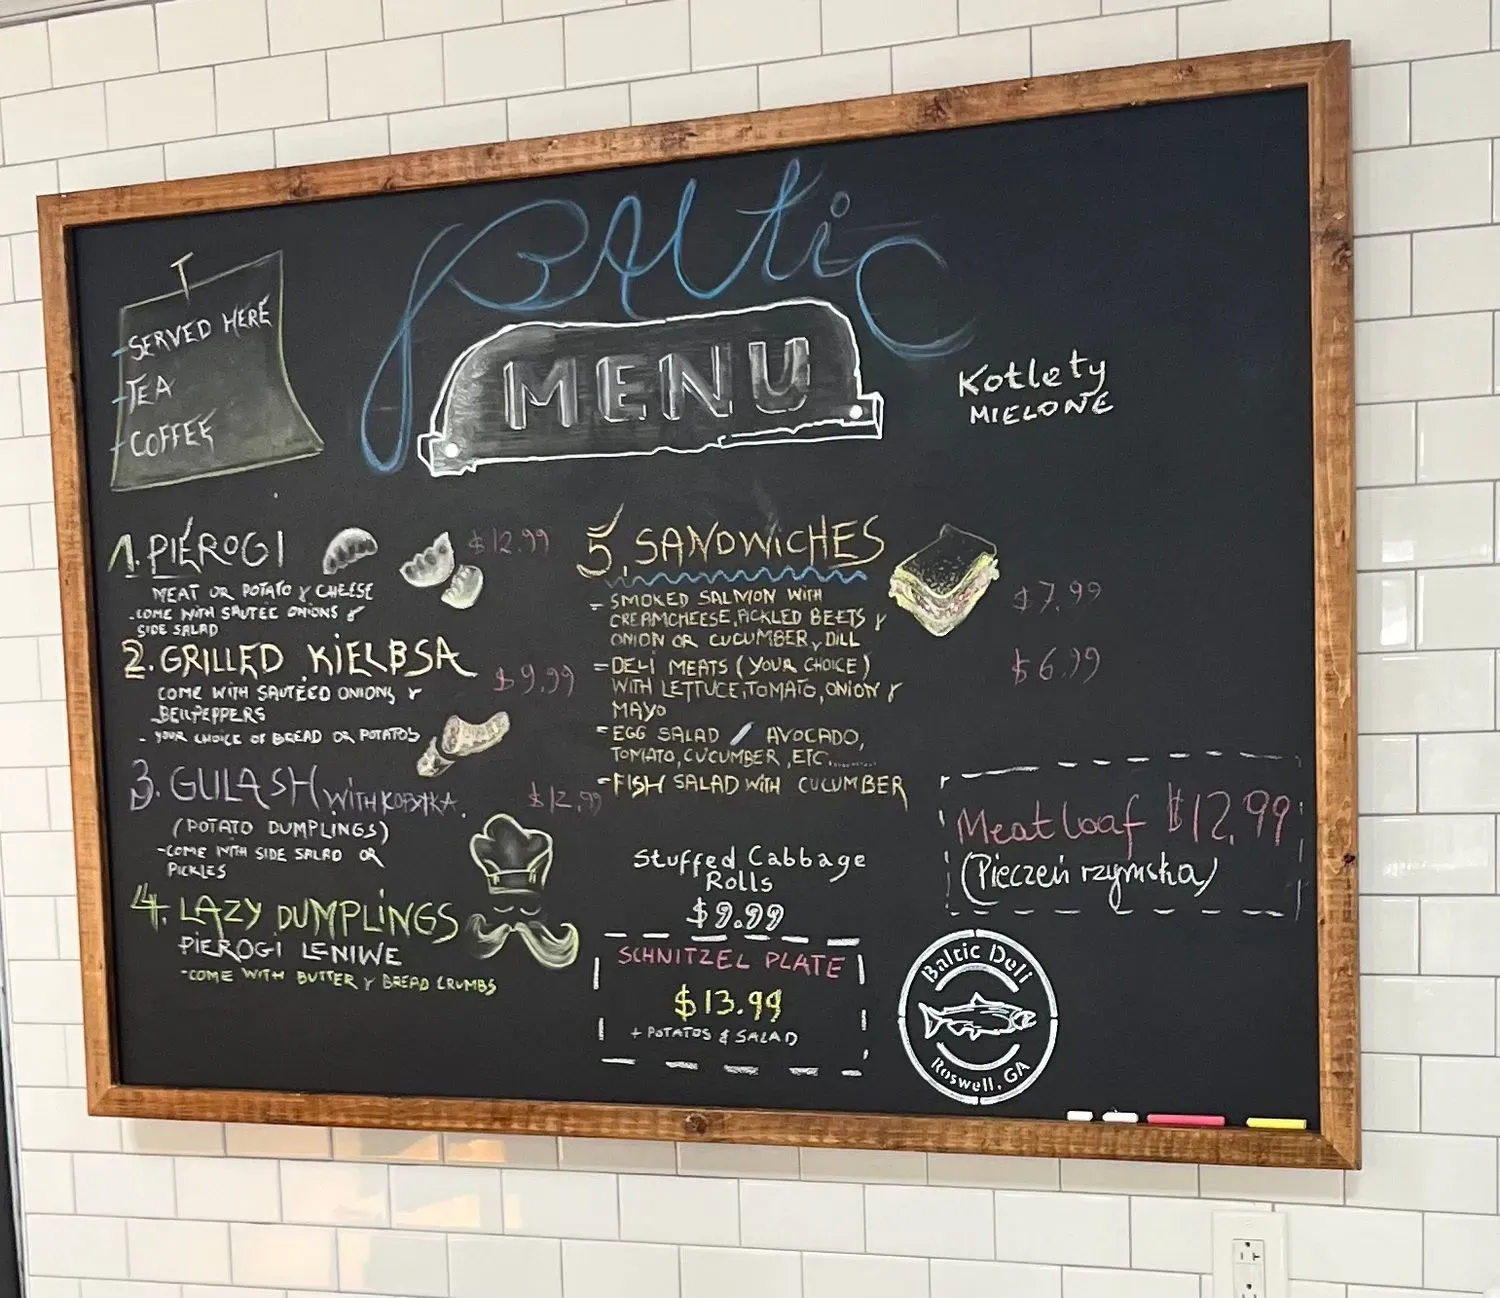 Baltic
MENU
SERVED HERE
- TEA
- COFFEE
Kotlety
MIELONE
1. PIEROGI $12.99
MEAT OR POTATO & CHEESE
- COME WITH SAUTEE ONIONS &
SIDE SALAD
2. GRILLED KIELBSA $9.99
COME WITH SAUTEED ONIONS &
BELLPEPPERS
- YOUR CHOICE OF BREAD OR POTATOS
3. GULASH WITH $12.99
(POTATO DUMPLINGS)
- COME WITH SIDE SALAD OR
PICKLES
4. LAZY DUMPLINGS
PIEROGI LENIWE
- COME WITH BUTTER & BREAD CRUMBS
5. SANDWICHES
= SMOKED SALMON WITH $7.99
CREAMCHEESE, PICKLED BEETS &
ONION OR CUCUMBER, DILL
= DELI MEATS (YOUR CHOICE) $6.99
WITH LETTUCE, TOMATO, ONION &
MAYO
= EGG SALAD / AVOCADO,
TOMATO, CUCUMBER, ETC........
= FISH SALAD WITH CUCUMBER
Stuffed Cabbage
Rolls
$9.99
SCHNITZEL PLATE
$13.99
+ POTATOS & SALAD
Meatloaf $12.99
(Pieczeń rzymska)
Baltic Deli
Roswell, GA